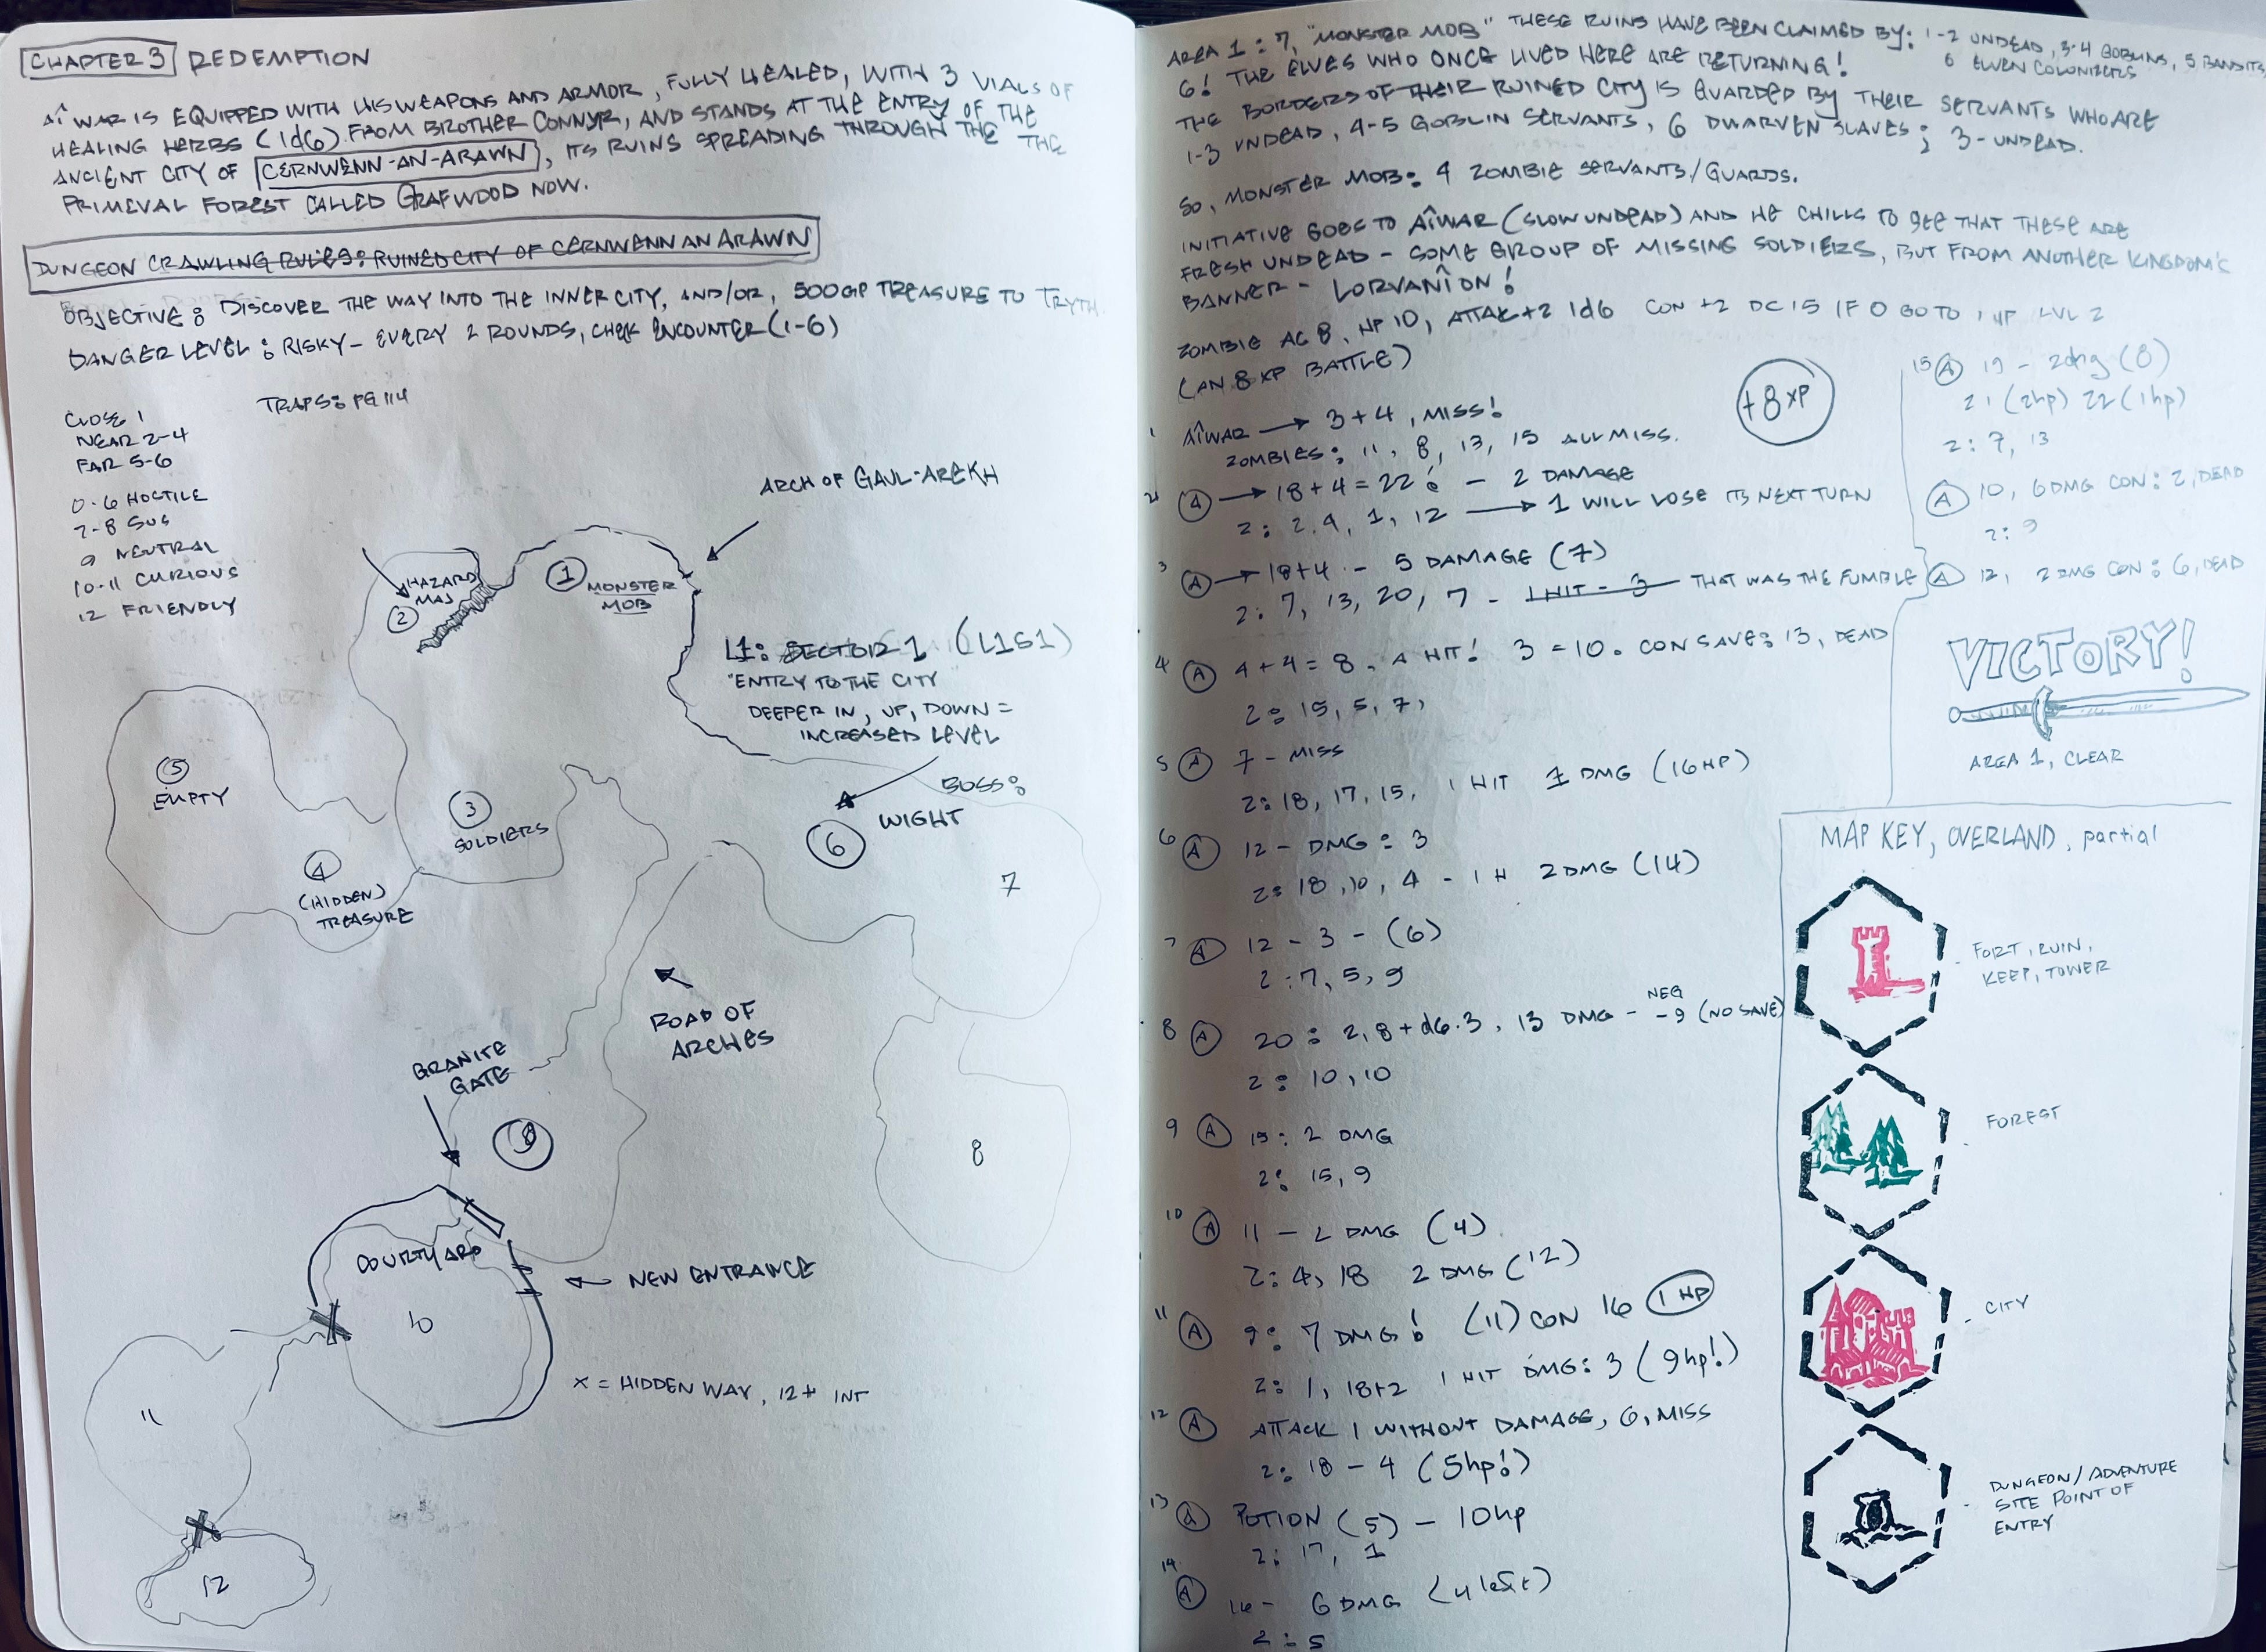 CHAPTER 3 REDEMPTION
AÎWAR IS EQUIPPED WITH HIS WEAPONS AND ARMOR, FULLY HEALED, WITH 3 VIALS OF
HEALING HERBS (1d6) FROM BROTHER CONNYR, AND STANDS AT THE ENTRY OF THE
ANCIENT CITY OF CERNWENN-AN-ARAWN, ITS RUINS SPREADING THROUGH THE THE
PRIMEVAL FOREST CALLED GRAFWOOD NOW.
DUNGEON CRAWLING RULES: RUINED CITY OF CERNWENN AN ARAWN
OBJECTIVE: DISCOVER THE WAY INTO THE INNER CITY, AND/OR, 500GP TREASURE TO TRYTH
DANGER LEVEL: RISKY - EVERY 2 ROUNDS, CHEK ENCOUNTER (1-6)
CLOSE 1
NEAR 2-4
FAR 5-6
TRAPS: PG 114
0-6 HOSTILE
7-8 SUS
9 NEUTRAL
10-11 CURIOUS
12 FRIENDLY
ARCH OF GAUL-AREKH
HAZARD
MAJ
2
1
MONSTER
MOB
L1: SECTOR 1 (L1S1)
"ENTRY TO THE CITY
DEEPER IN, UP, DOWN =
INCREASED LEVEL
5
EMPTY
3
SOLDIERS
4
(HIDDEN)
TREASURE
BOSS:
WIGHT
6
7
ROAD OF
ARCHES
GRANITE
GATE
9
8
COURTYARD
10
NEW ENTRANCE
X = HIDDEN WAY, 12+ INT
11
12
AREA 1: 7, "MONSTER MOB" THESE RUINS HAVE BEEN CLAIMED BY: 1-2 UNDEAD, 3-4 GOBLINS, 5 BANDITS
6 ELVEN COLONIZERS
6! THE ELVES WHO ONCE LIVED HERE ARE RETURNING!
THE BORDERS OF THEIR RUINED CITY IS GUARDED BY THEIR SERVANTS WHO ARE
1-3 UNDEAD, 4-5 GOBLIN SERVANTS, 6 DWARVEN SLAVES; 3-UNDEAD.
SO, MONSTER MOB: 4 ZOMBIE SERVANTS/GUARDS.
INITIATIVE GOES TO AÎWAR (SLOW UNDEAD) AND HE CHILLS TO SEE THAT THESE ARE
FRESH UNDEAD - SOME GROUP OF MISSING SOLDIERS, BUT FROM ANOTHER KINGDOM'S
BANNER - LORVANÎON!
ZOMBIE AC 8, HP 10, ATTAK +2 1d6 CON +2 DC 15 IF 0 GO TO 1 HP LVL 2
(AN 8 XP BATTLE)
+8 XP
1 AÎWAR → 3+4, MISS!
ZOMBIES: 11, 8, 13, 15 ALL MISS.
2 A → 18+4=22: - 2 DAMAGE
Z: 2, 9, 1, 12 → 1 WILL LOSE ITS NEXT TURN
3 A → 18+4 - 5 DAMAGE (7)
Z: 7, 13, 20, 7 - 1 HIT - 3 THAT WAS THE FUMBLE
4 A 4+4=8. A HIT! 3=10. CON SAVE: 13, DEAD
Z: 15, 5, 7,
5 A 7 - MISS
Z: 18, 17, 15, 1 HIT 1 DMG (16HP)
6 A 12 - DMG: 3
Z: 18, 10, 4 - 1 H 2 DMG (14)
7 A 12 - 3 - (6)
Z: 7, 5, 9
8 A 20: 2, 8+d6·3, 13 DMG - NEG -9 (NO SAVE)
Z: 10, 10
9 A 19: 2 DMG
Z: 15, 9
10 A 11 - 2 DMG (4)
Z: 4, 18 2 DMG (12)
11 A 9: 7 DMG! (11) CON 16 1 HP
Z: 1, 18+2 1 HIT DMG: 3 (9hp!)
12 A ATTACK 1 WITHOUT DAMAGE, 6, MISS
Z: 18 - 4 (5hp!)
13 A POTION (5) - 10hp
Z: 17, 1
14 A 16 - 6 DMG (4 left)
Z: 5
15 A 19 - 2dmg (8)
21 (2hp) 22 (1hp)
Z: 7, 13
A 10, 6 DMG CON: 2, DEAD
Z: 9
A 12, 2 DMG CON: 6, DEAD
VICTORY!
AREA 1, CLEAR
MAP KEY, OVERLAND, partial
FORT, RUIN,
KEEP, TOWER
FOREST
CITY
DUNGEON/ADVENTURE
SITE POINT OF
ENTRY